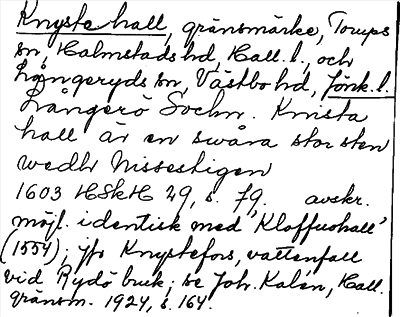 Knyste hall, gränsmärke, Torups
sn, Halmstads hd, Hall. l., och
Långaryds sn, Västbo hd, Jönk. l.
Långerö Sochn. Knista
hall är en swåra stor sten
wedh Nissestigen
1603 HSkH 29, s. 79. avskr.
möjl. identisk med 'Kloffuohall'
(1554); jfr Knystefors, vattenfall
vid Rydö bruk; se Joh. Kalén, Hall.
gränsm. 1924, s. 164.